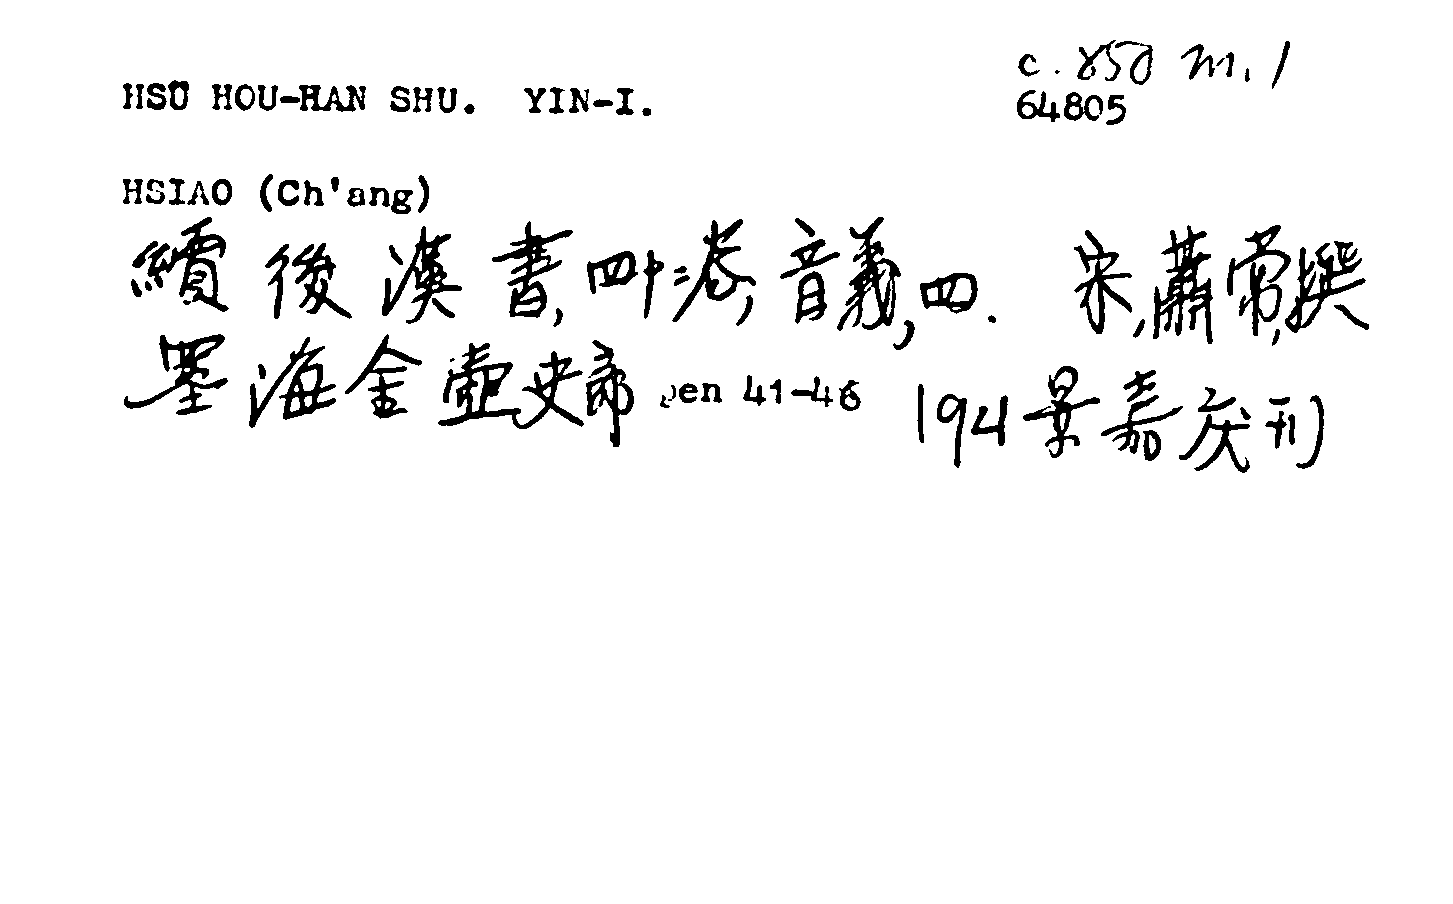 HSÜ HOU-HAN SHU. YIN-I.
c. 850 m. 1
64805
HSIAO (Ch'ang)
續後漢書,四十二卷,音義,四. 宋,蕭常,撰
墨海金壺史部 pen 41-46 1921景嘉慶刊